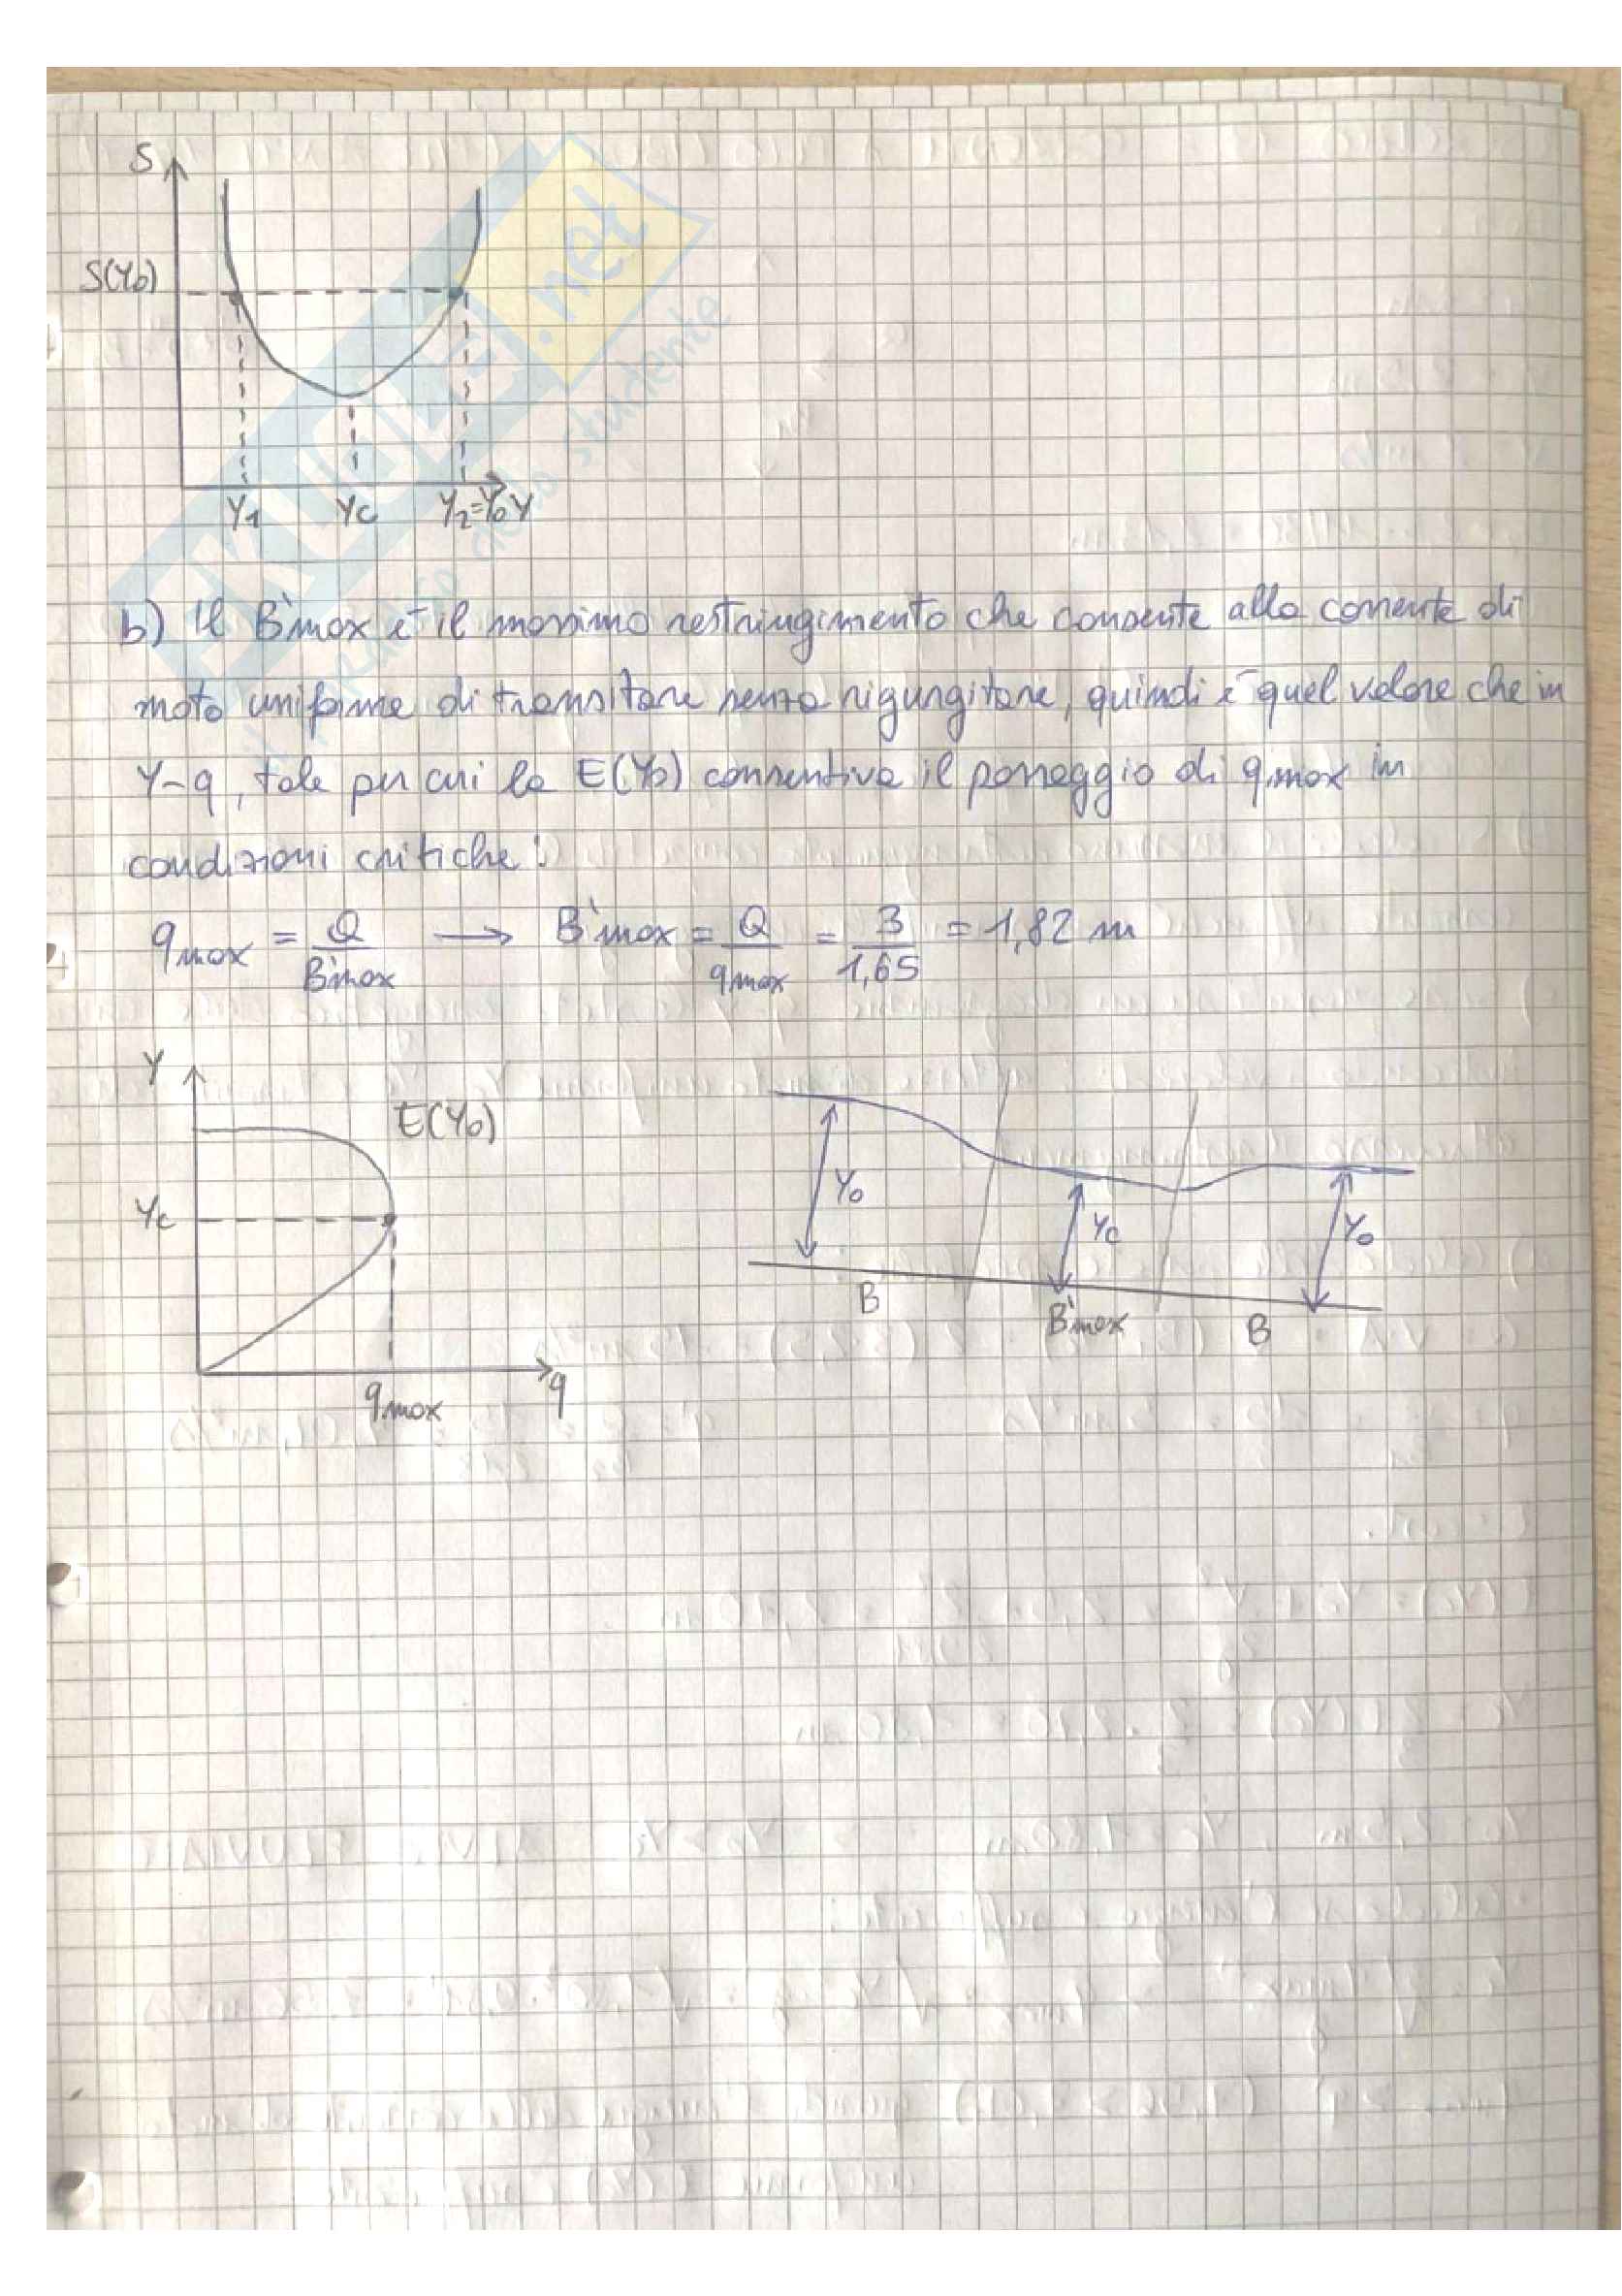 S
S(Y₀)
Y₁ Yc Y₂=Y₀ Y
SKUOLA.net
il paradiso dello studente
b) Il B'max è il massimo restringimento che consente alla corrente di
moto uniforme di transitare senza rigurgitare, quindi è quel valore che in
Y-q, tale per cui la E(Y₀) consentiva il passaggio di qmax in
condizioni critiche:
qmax = Q/B'max → B'max = Q/qmax = 3/1,65 = 1,82 m
Y
E(Y₀)
Yc
qmax q
Y₀ Yc Y₀
B B'max B